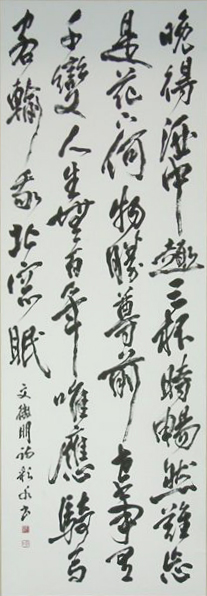 晩得酒中趣三杯時暢然難忘
是花下何物勝尊前世事有
千變人生無百年唯應騎馬
客輸我北窓眠
文徵明詩